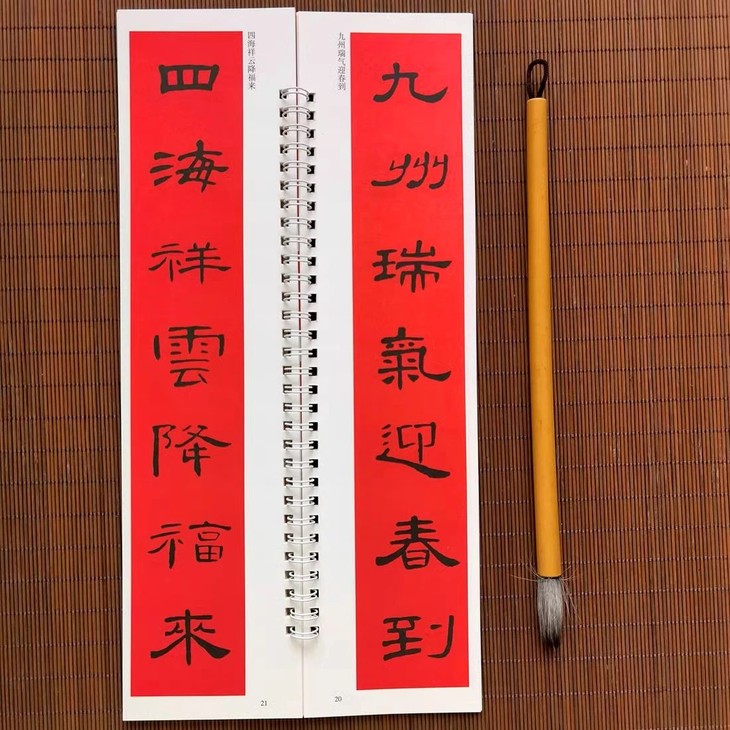 九州瑞氣迎春到
九州瑞气迎春到
20
四海祥雲降福來
四海祥云降福来
21